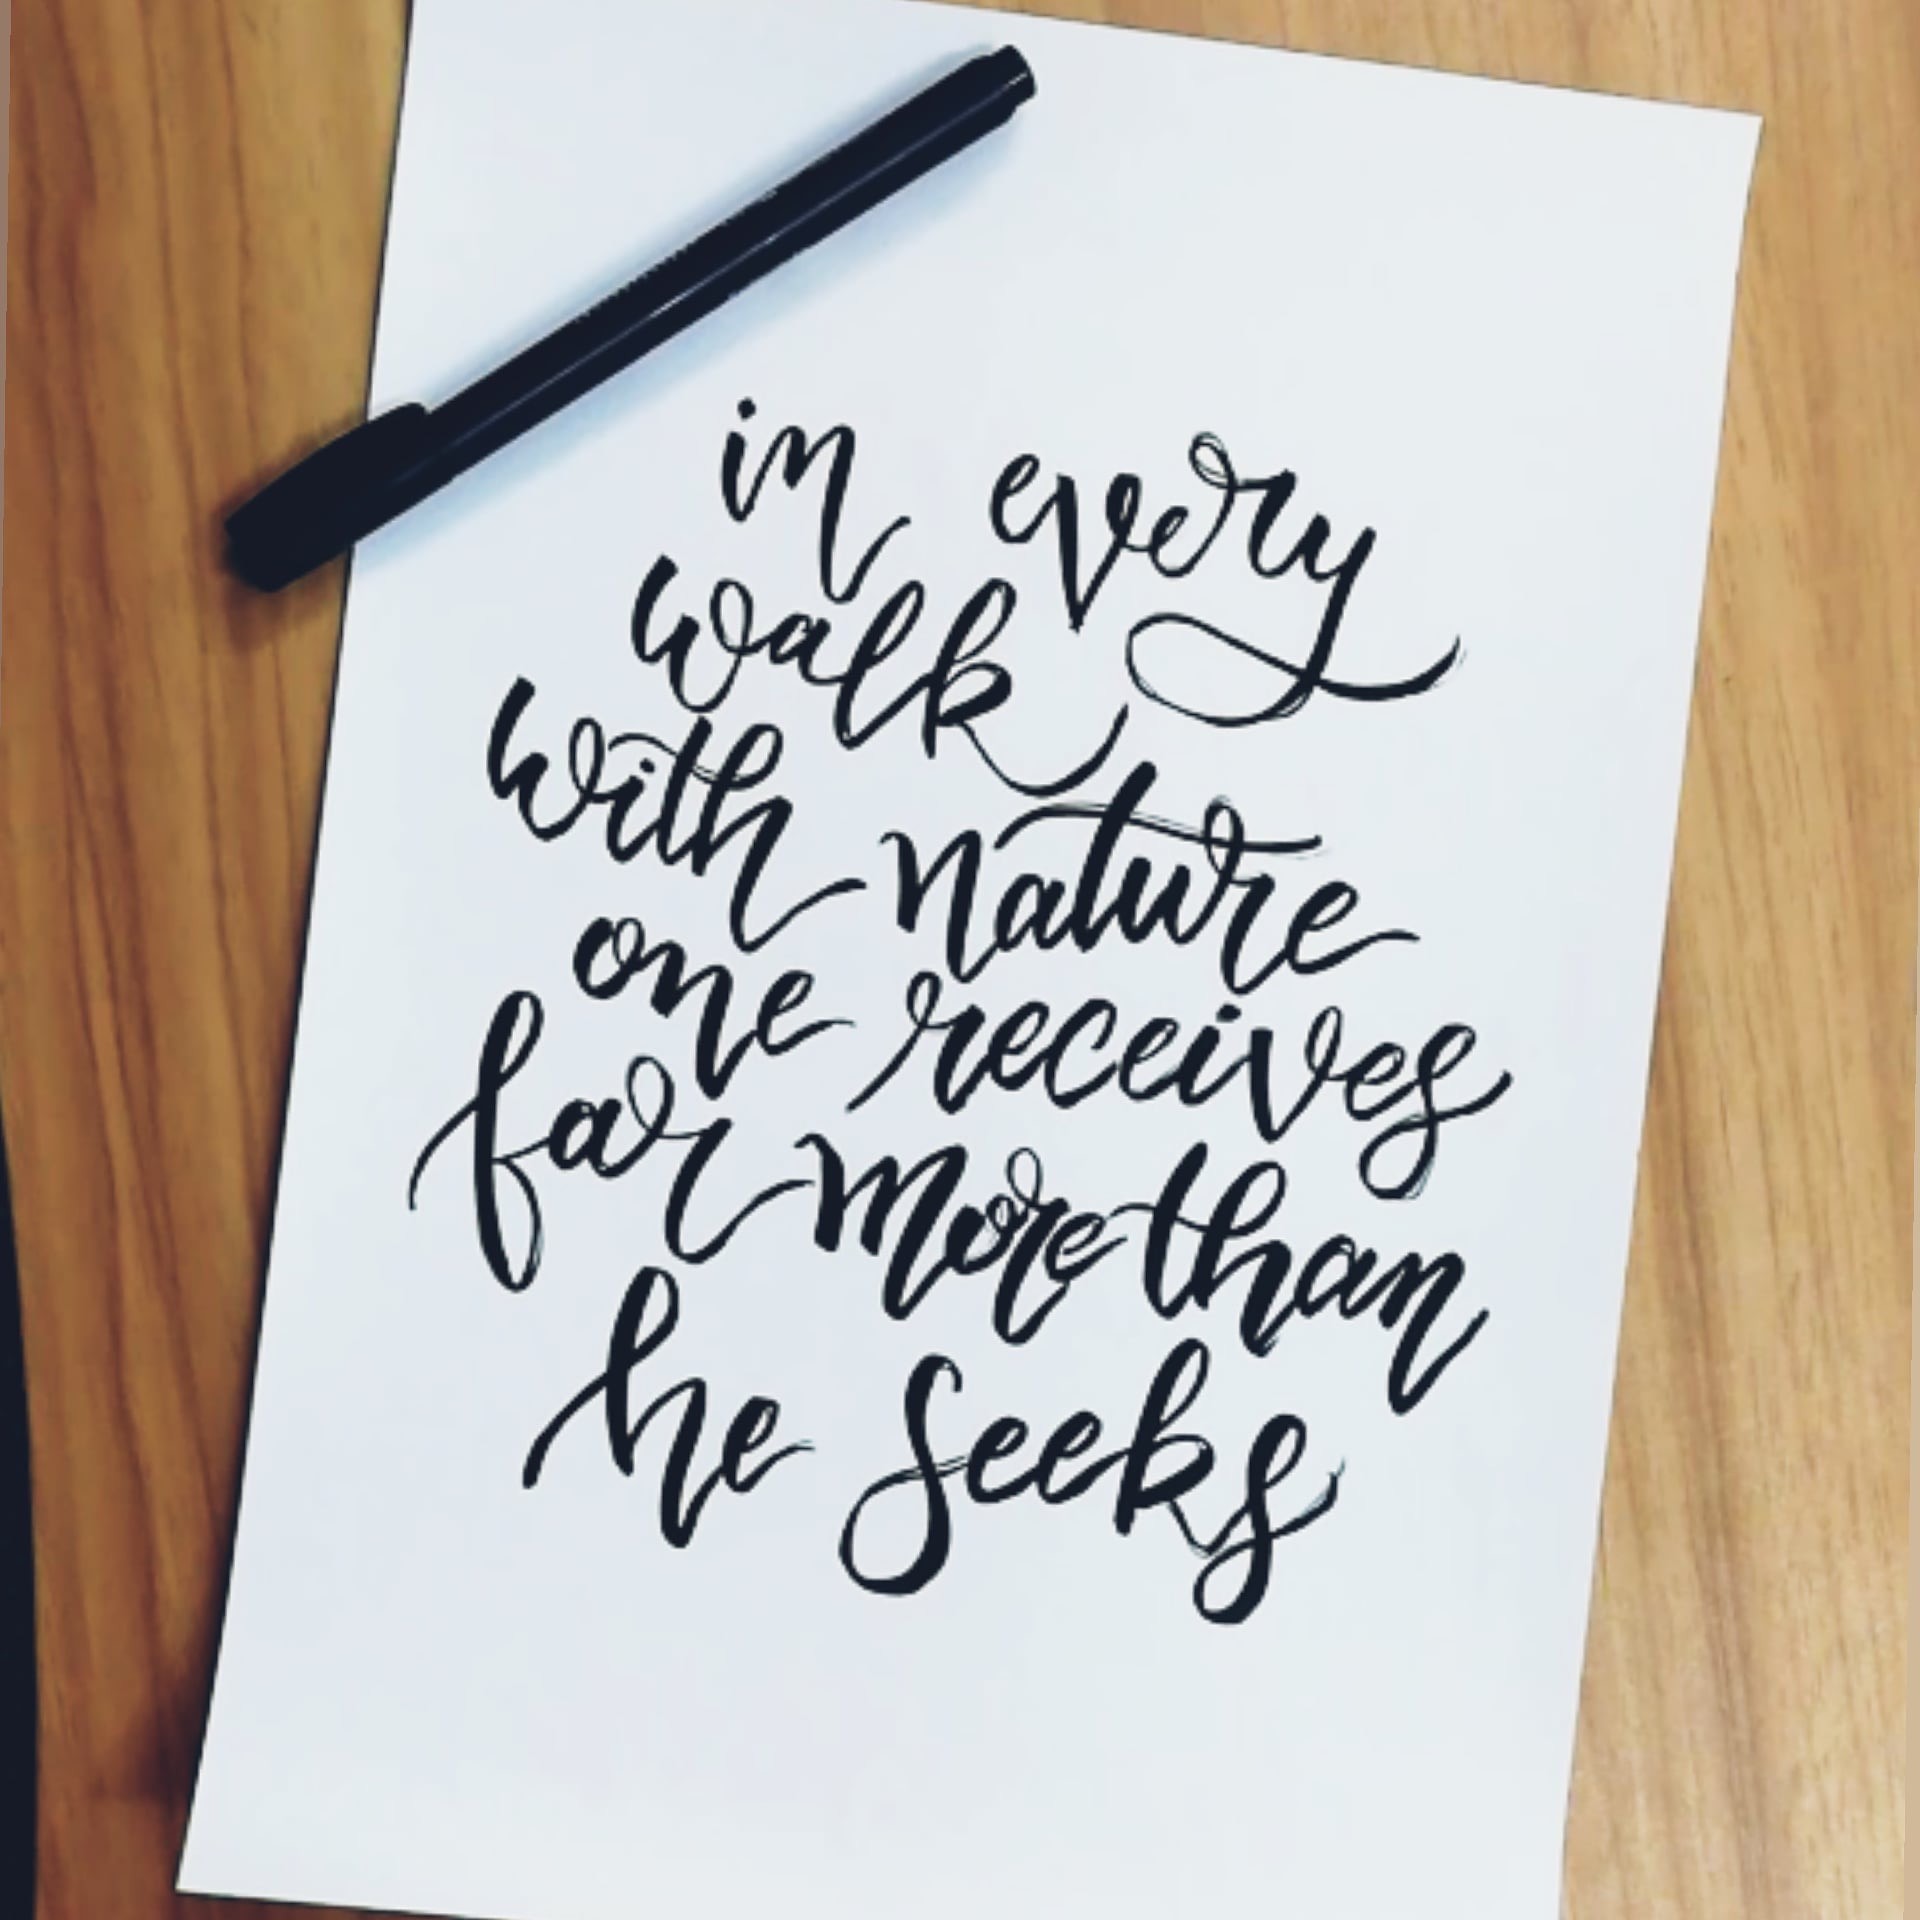 in every
walk
with nature
one receives
far more than
he seeks